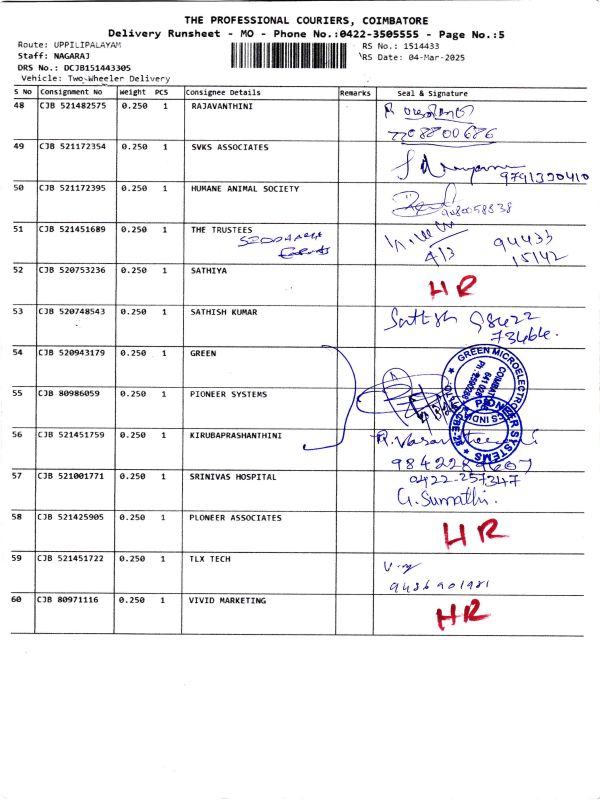 THE PROFESSIONAL COURIERS, COIMBATORE
Delivery Runsheet - MO - Phone No.:0422-3505555 - Page No.:5
Route: UPPILIPALAYAM RS No.: 1514433
Staff: NAGARAJ RS Date: 04-Mar-2025
DRS No.: DCJB151443305
Vehicle: Two-Wheeler Delivery
S No Consignment No Weight PCS Consignee Details Remarks Seal & Signature
48 CJB 521482575 0.250 1 RAJAVANTHINI
7708800686
49 CJB 521172354 0.250 1 SVKS ASSOCIATES
9791390410
50 CJB 521172395 0.250 1 HUMANE ANIMAL SOCIETY
9080058838
51 CJB 521451689 0.250 1 THE TRUSTEES
4/3 94433
15142
52 CJB 520753236 0.250 1 SATHIYA HR
53 CJB 520748543 0.250 1 SATHISH KUMAR Sathish 98422
73464.
54 CJB 520943179 0.250 1 GREEN
GREEN MICROELECTRO
COIMBAT
641 028
55 CJB 80986059 0.250 1 PIONEER SYSTEMS
PIONEER SYSTEMS
56 CJB 521451759 0.250 1 KIRUBAPRASHANTHINI
57 CJB 521001771 0.250 1 SRINIVAS HOSPITAL 0422-257347
G. Sumathi.
58 CJB 521425905 0.250 1 PLONEER ASSOCIATES HR
59 CJB 521451722 0.250 1 TLX TECH
9486901981
60 CJB 80971116 0.250 1 VIVID MARKETING HR